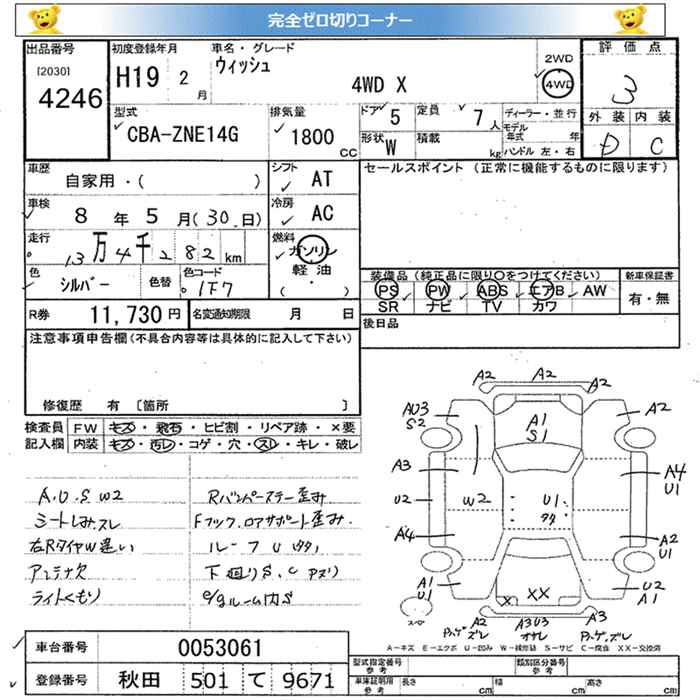 完全ゼロ切りコーナー
出品番号
[2030]
4246
初度登録年月
H19 2月
車名・グレード
ウィッシュ
4WD X
2WD
4WD
評価点
3
外装 内装
D C
型式
CBA-ZNE14G
排気量
1800 CC
ドア 5
定員 7人
形状 W
積載 kg
ディーラー・並行
モデル年式 年
ハンドル 左・右
車歴
自家用・( )
シフト
AT
セールスポイント (正常に機能するものに限ります)
車検
8年5月(30日)
冷房
AC
走行
13万4千282km
燃料
ガソリン
軽油
( ・ )
色
シルバー
色替
色コード
1F7
装備品 (純正品に限り○をつけてください)
PS PW ABS エアB AW
SR ナビ TV カワ
新車保証書
有・無
R券 11,730円
名変通知期限 月 日
後日品
注意事項申告欄(不具合内容等は具体的に記入して下さい)
修復歴 有 [箇所 ]
検査員記入欄
FW キズ・飛石・ヒビ割・リペア跡・×要
内装 キズ・汚レ・コゲ・穴・スレ・キレ・破レ
A.U.S W2
シートしみ.スレ
右RタイヤW違い
アンテナ欠
ライトくもり
Rバンパーステー歪み
Fフック.ロアサポート歪み.
ルーフ U
下廻りS.C
e/gルーム内S
A2 A2 A2
AU3
S2
A2
A1
S1
A3
U2
W2
U1
A4
U1
A4
A2
U1
A1
U1
XX
×
U2
A1
A2
AU3
A3
A-キズ E-エクボ U-凹み W-補修跡 S-サビ C-腐食 XX-交換済
車台番号 0053061
登録番号 秋田 501 て 9671
型式指定番号
参考
類別区分番号
参考
車庫証明用
参考
長さ cm
幅 cm
高さ cm